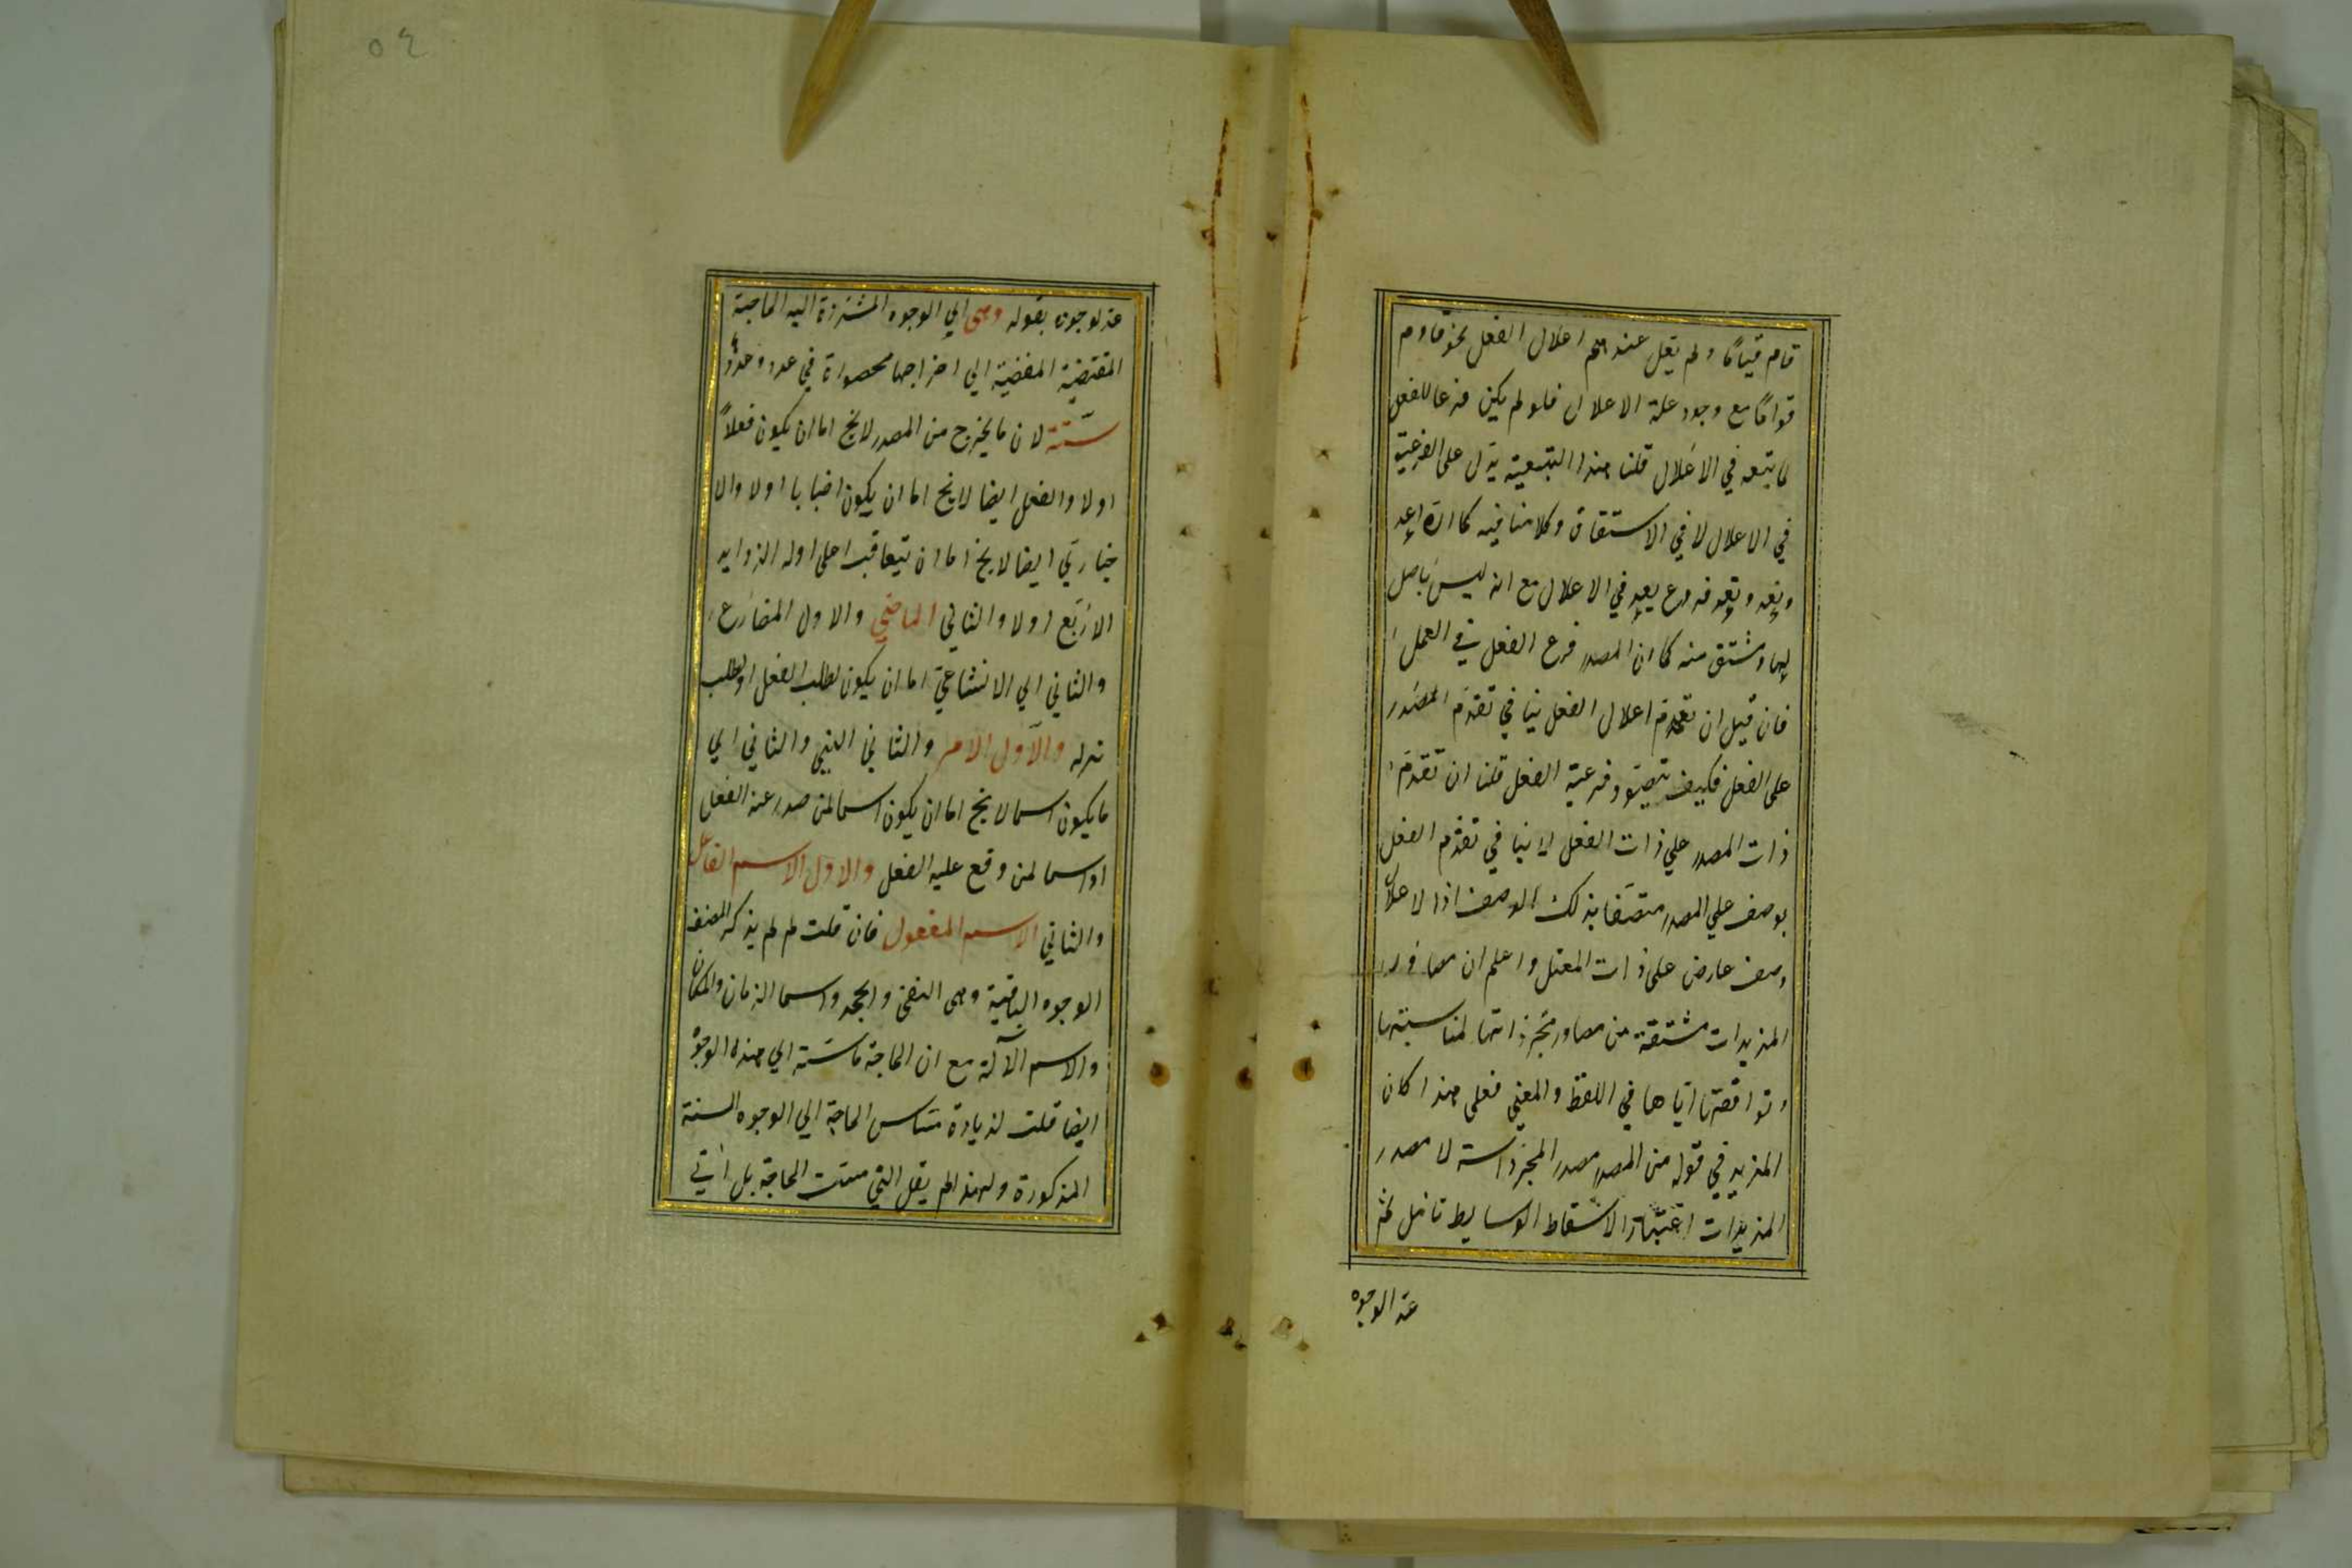 قام قياما ولم يعل عندهم اعلال الفعل نحو قاوم
قواما مع وجود علة الاعلال فلو لم يكن فرعا للفعل
لما يتبعه في الاعلال قلنا هذا التبعية يدل على الفرعية
في الاعلال لا في الاشتقاق وكلامنا فيه كما ان اعد
ونعد وتعد فروع يعد في الاعلال مع انه ليس باصل
لها ومشتق منه كما ان المصدر فرع الفعل في العمل
فان قيل ان تقدم اعلال الفعل ينافي تقدم المصدر
على الفعل فكيف يتصور فرعية الفعل قلنا ان تقدم
ذات المصدر علي ذات الفعل لا ينافي تقدم الفعل
بوصف علي المصدر متصفا بذلك الوصف اذ الاعلال
وصف عارض على ذات المعتل واعلم ان مصادر
المزيدات مشتقة من مصادر مجرداتها لمناسبتها
وتوافقتها اياها في اللفظ والمعني فعلى هذا كان
المزيد في قوله من المصدر مصدر المجرد لا مصدر
المزيدات اعتبارا لاسقاط الوسايط تامل ثم
عد الوجوه
٥٤
عد لوجوه بقوله وهى اي الوجوه المشتركة اليه الحاجة
المقتضية المفضية الي اخراجها محصورة في عدد وحدد
ستة لان ما يخرج من المصدر لا يخ اما ان يكون فعلا
اولا والفعل ايضا لا يخ اما ان يكون اخبارا اولا والا
خباري ايضا لا يخ اما ان يتعاقب على اوله الزوايد
الاربع اولا والثاني الماضي والاول المضارع
والثاني اي الانشاء اما ان يكون لطلب الفعل او لطلب
تركه والاول الامر والثاني النهي والثاني اي
ما يكون اسما لا يخ اما ان يكون اسما لمن صدر عنه الفعل
او اسما لمن وقع عليه الفعل والاول الاسم الفاعل
والثاني الاسم المفعول فان قلت لم لم يذكر المصنف
الوجوه الباقية وهى النفى والجحد واسما الزمان والمكان
والاسم الآلة مع ان الحاجة ماسة الي هذه الوجوه
ايضا قلت لزيادة مساس الحاجة الي الوجوه الستة
المذكورة ولهذا لم يقل التي مست الحاجة بل اتي